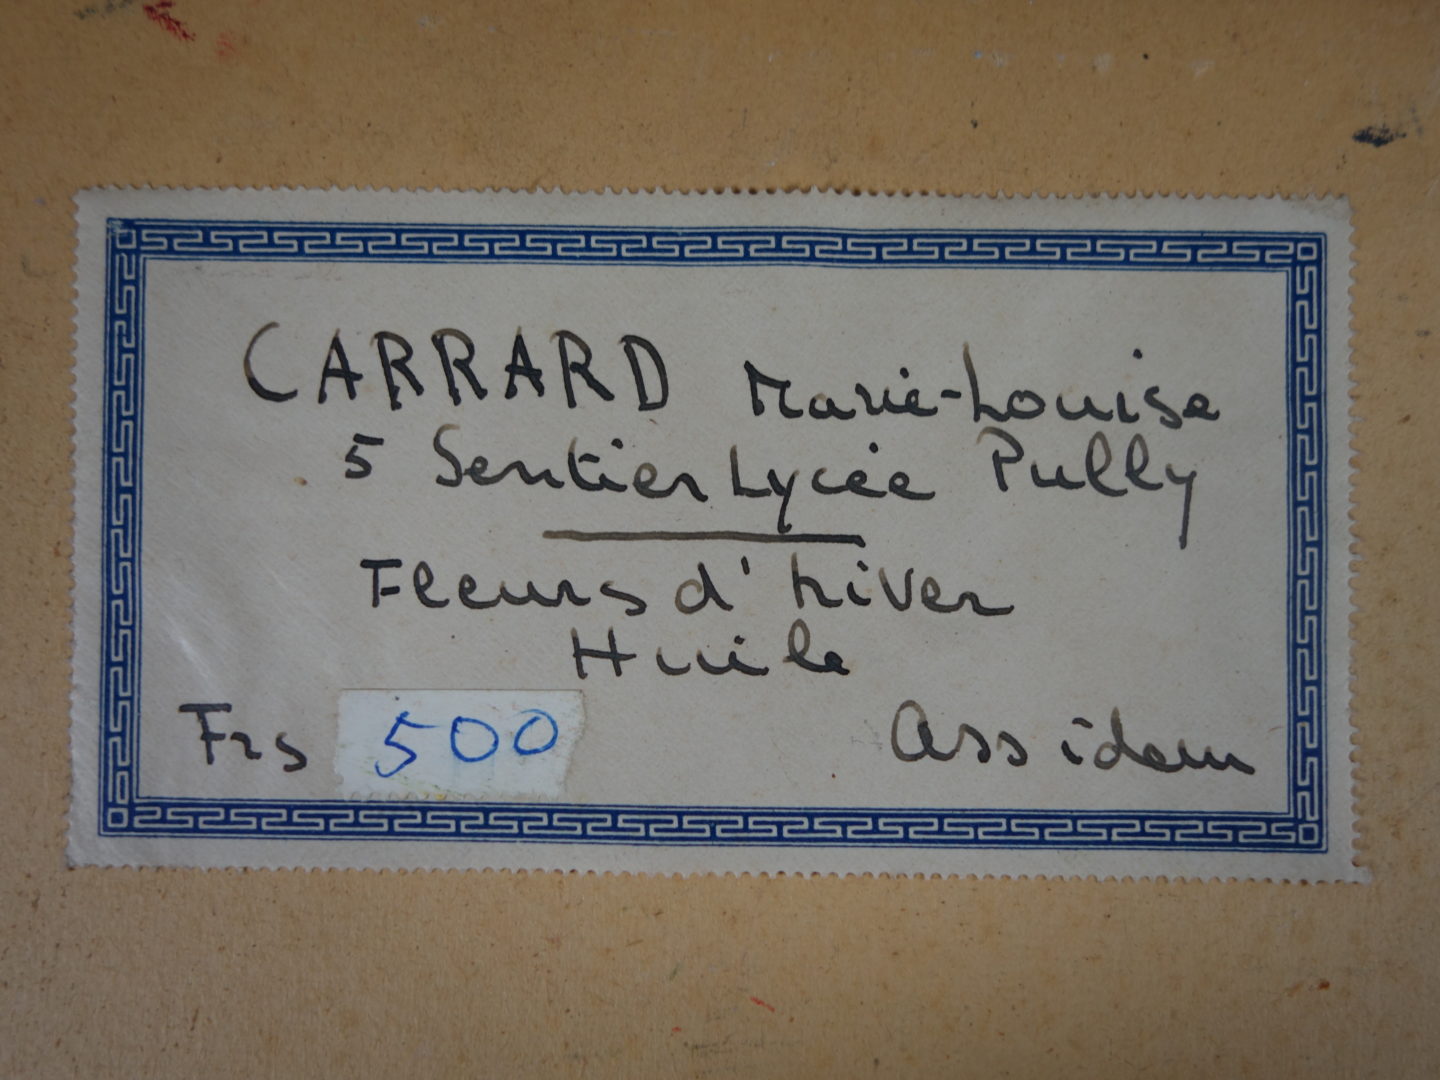 CARRARD Marie-Louise
5 Sentier Lycée Pully
Fleurs d'hiver
Huile
Frs 500 Ass idem